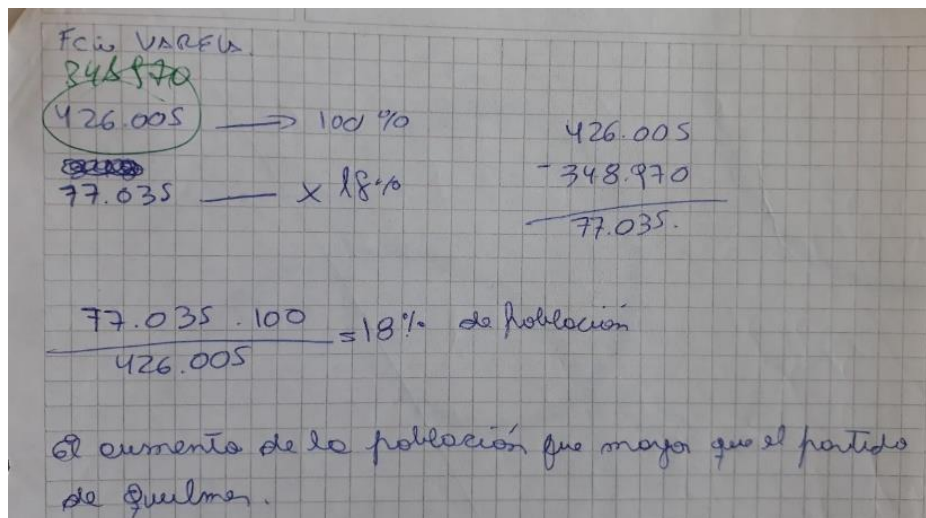 Fcio VARELA.
348970
426.005 → 100 %
77.035 — x 18%
426.005
- 348.970
77.035.
77.035 . 100
426.005
= 18% de población
El aumento de la población fue mayor que el partido
de Quilmes.